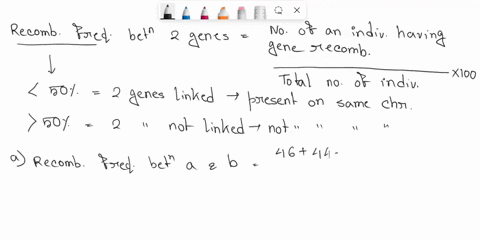 Recomb. freq. betⁿ 2 genes = No. of an indiv. having gene recomb.
Total no. of indiv. X100
< 50% = 2 genes linked → present on same chr.
> 50% = 2 " not linked → not " " " "
a) Recomb. freq. betⁿ a & b = 46 + 44 -